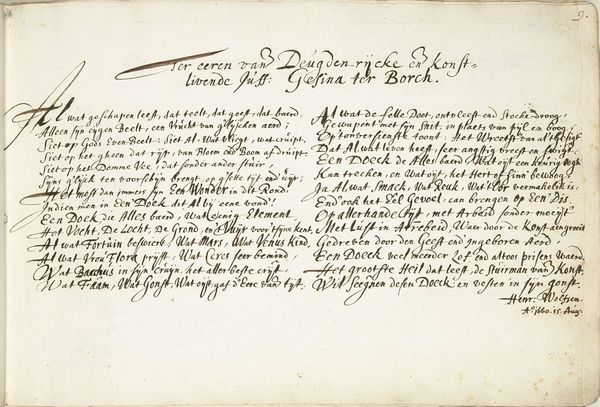 9.
Ter eeren van Deugden-rijcke en Konst-
livende Juff: Gesina ter Borch.
Al wat geschapen leeft, dat teelt, dat geeft, dat baerd,
Alleen sijn eygen Beelt, een Vrucht van gelijcken aerd;
Siet op Gods Even Beelt: Siet Al, Wat vliegt, wat cruipt,
Siet op het gheen dat rijst, van Bloem end Boom afdruipt,
Siet op het Domme Vee, dat sonder ander stuir,
Sijns gelijck ten voorschijn brengt, op sette tijt end uijr;
Het most dan immers sijn Een Wonder in dit Rond!
Indien men in Een Doeck dit Al bij eene vond!
Een Doeck die Alles baerd, Wat eenig Element,
Het Vocht, De Locht, De Grond, en't Vuijr voortsijne kent,
Al wat Fortuin beswiert, Wat Mars, Wat Venus kind,
Al wat Vrou Flora prijst, Wat Ceres seer bemind,
Wat Bacchus in sijn Cruijn, het aller beste crijst,
Wat Faam, Wat Gonst, Wat oijt gaf d'Eere van tijt.
Al wat de felle Doot, ontvleest end Stocke droog,
Gewapent met sijn Snit, in plaets van pijl en boog;
Op't onversienste toont: Het Wreetst van al
Dat Al wat leven heeft, seer angstig vreest en
Een Doeck die Alles baerd Wat oijt een keurig oogh
Kan trecken, en Wat oijt, het Hert of Sinn' bewoog
Ja Al wat Smack, Wat Reuk, Wat t'Oor vermakelix is,
End' ook het Eel Gevoel, can brengen op Een Dis,
Op aller hande tijt, met Arbeid sonder moeijt
Met Lust in Arrebeid Waer door de Konst aengroeit
Gedreven door den Geest end Ingeboren Aerd
Een Doeck veel meerder Lof end altoos prijsens Waerd
Het grootste Heil dat leeft, de Stuirman van d' Konst,
Wil seegnen desen Doeck en vesten in sijn gonst.
Henr: Wolfsen.
A° 1660. 15. Aug.